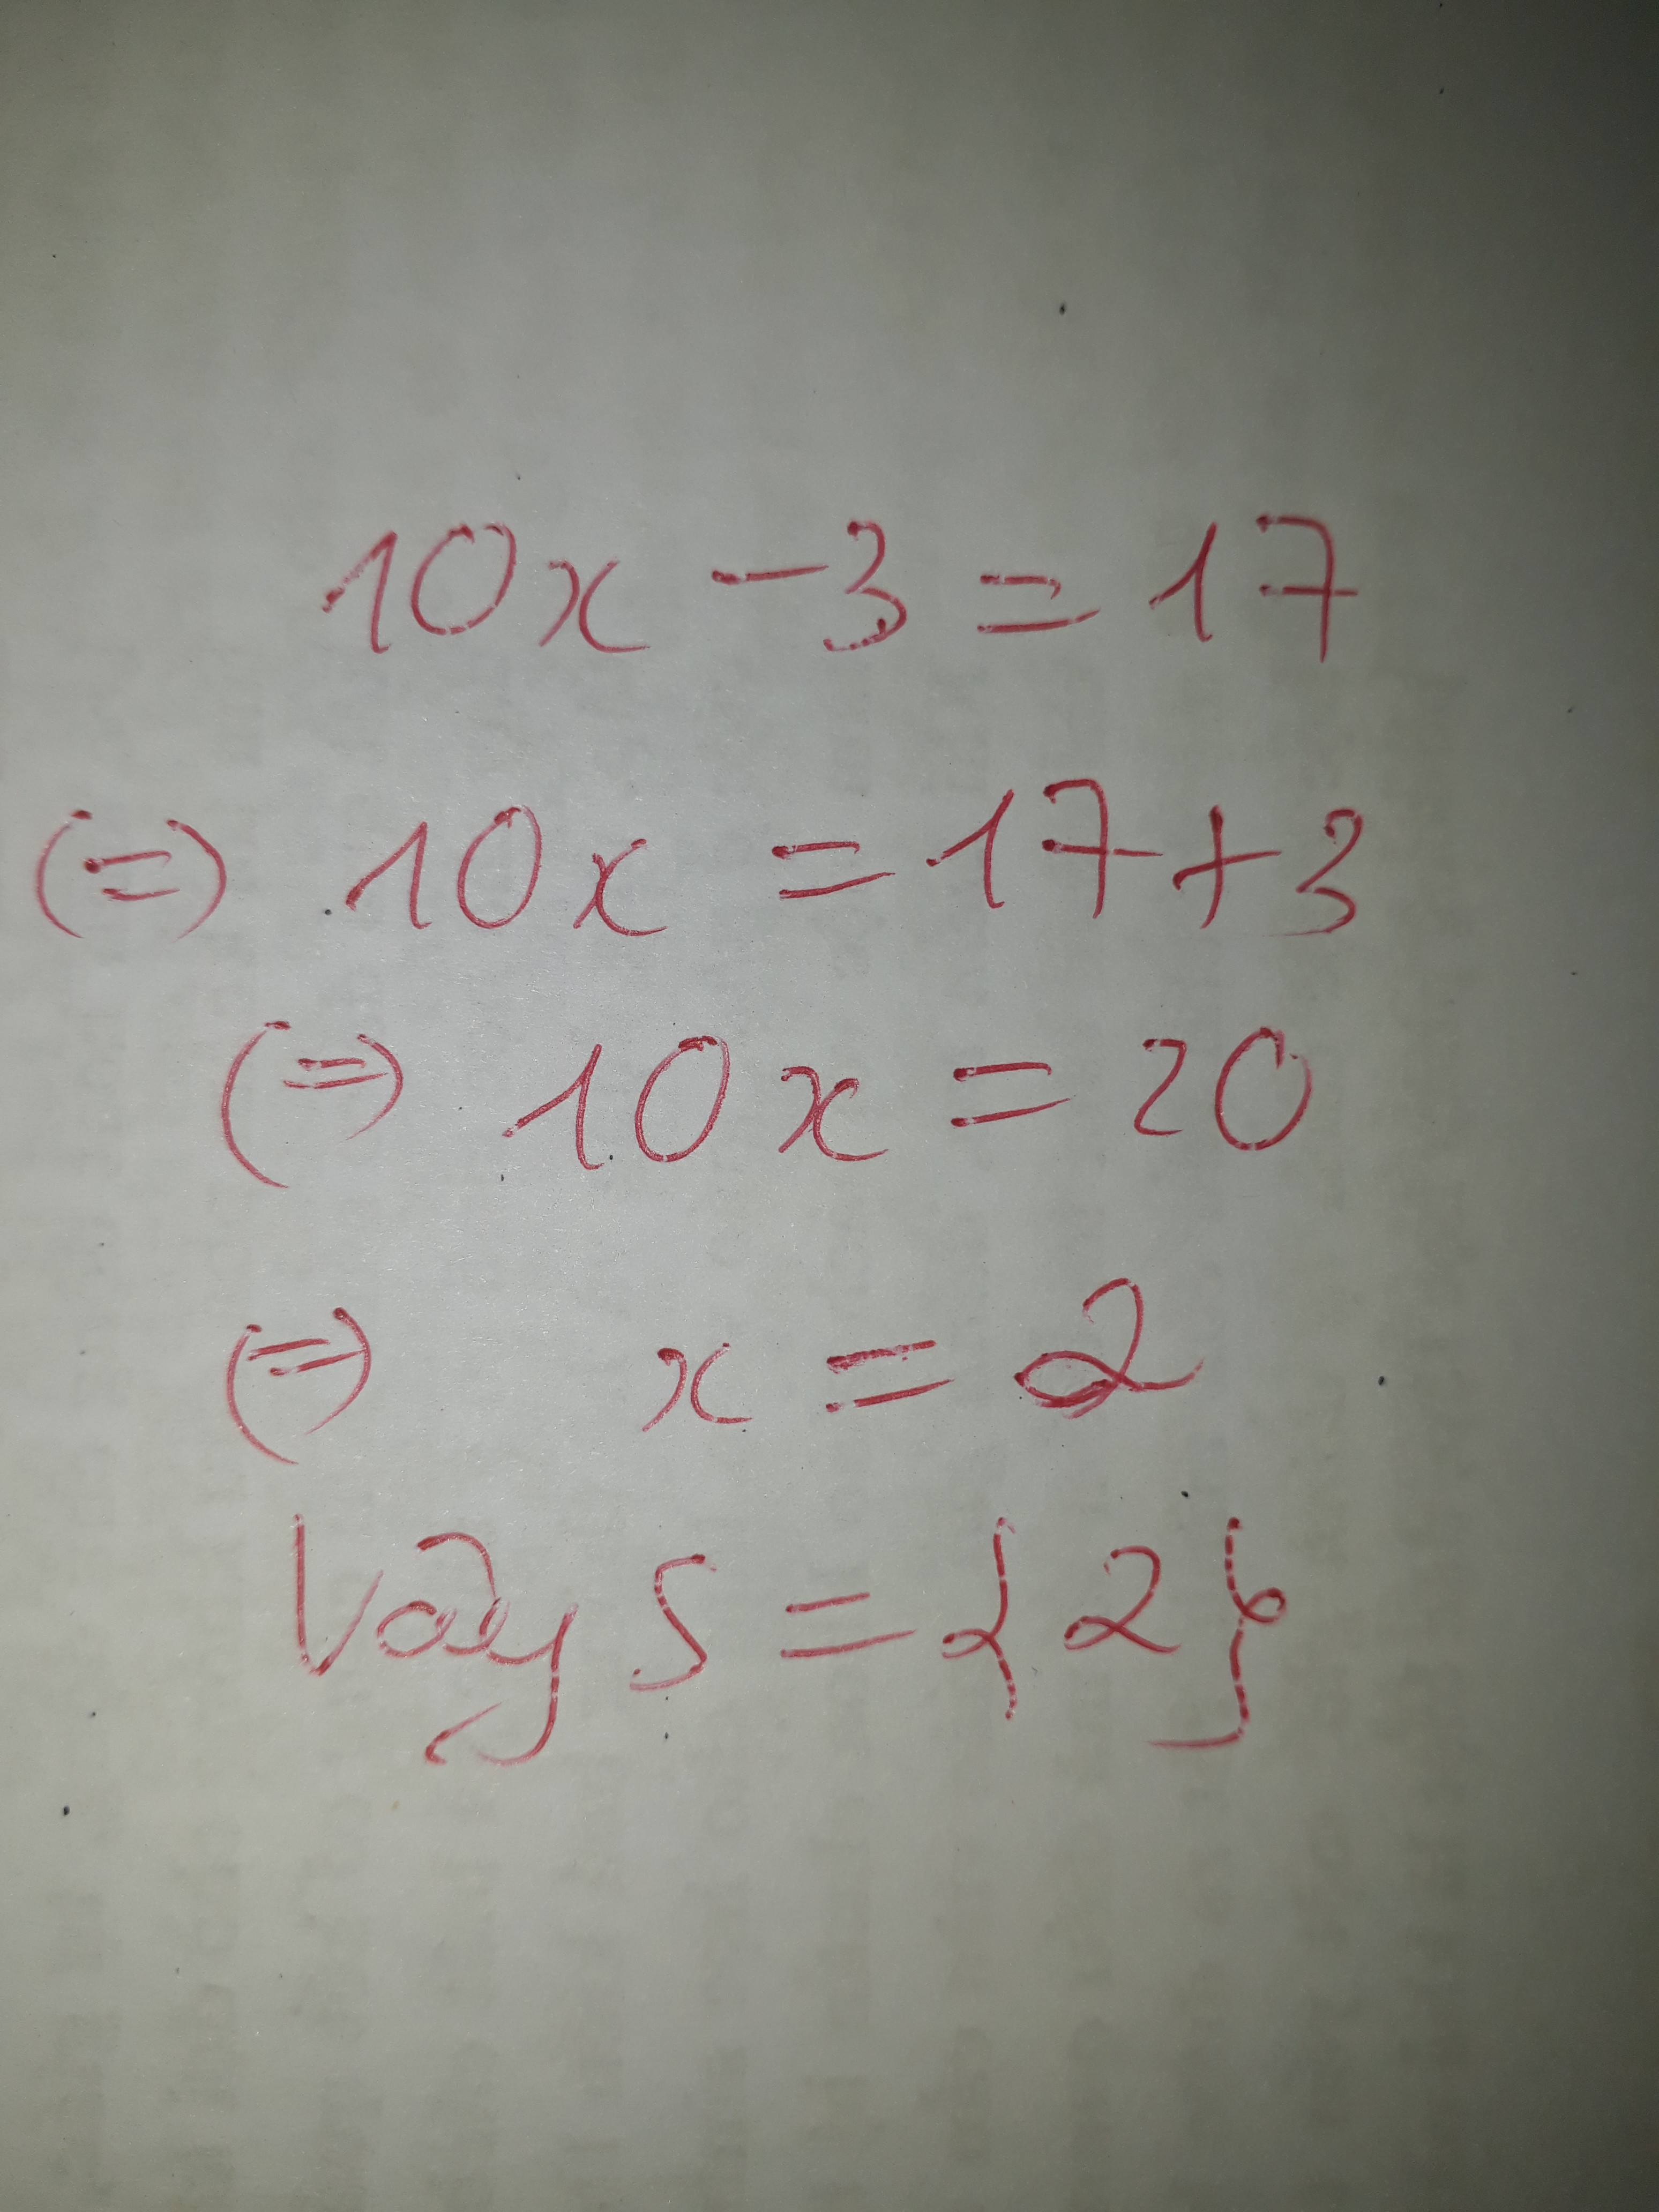 10x - 3 = 17
(=) 10x = 17 + 3
(=) 10x = 20
(=) x = 2
Vậy S = {2}